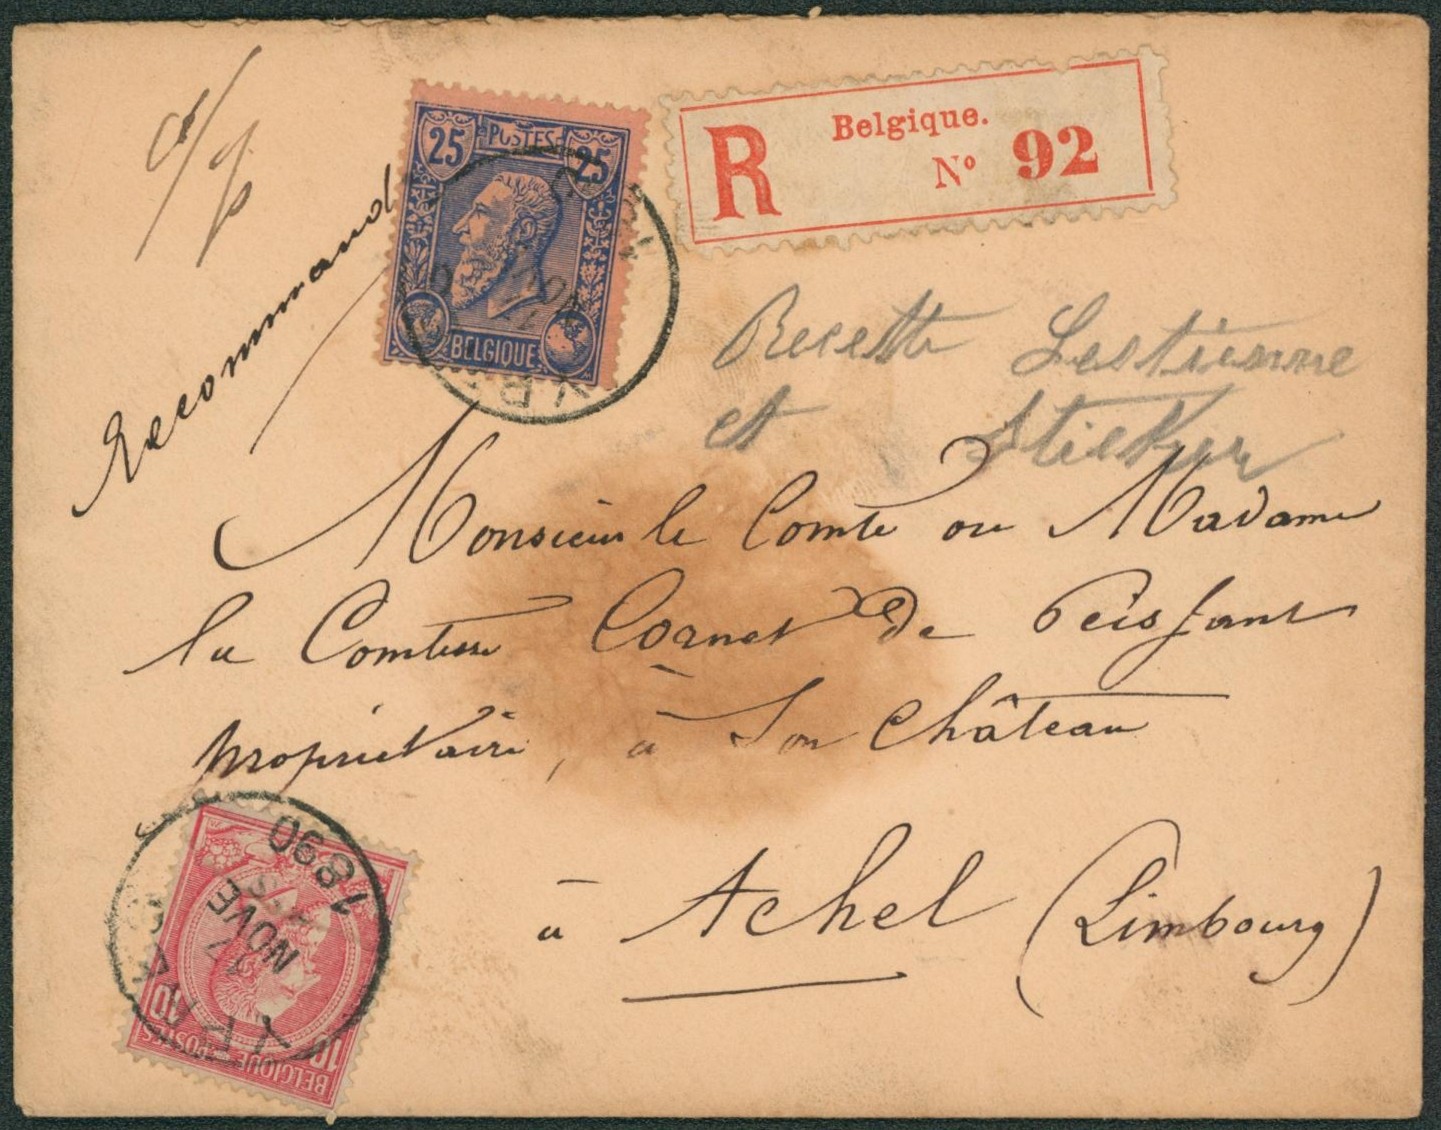 25 POSTES 25
BELGIQUE
Belgique.
R Nº 92
Recommandé
Recette Lestienne
et Sticker
Monsieur le Comte ou Madame
la Comtesse Cornet de Peissant
propriétaire, à Son Château
à Achel (Limbourg)
1890
NOVE
17
YPR
10 10
BELGIQUE POSTES